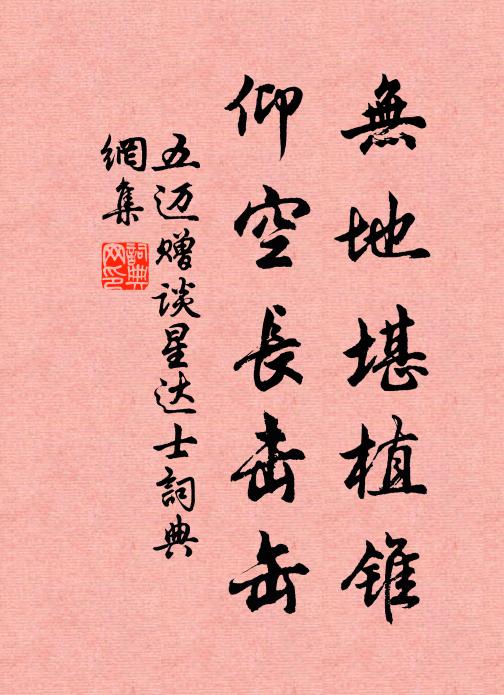 無地堪植錐
仰空長击缶
五迈赠谈星达士詞典
網集
詞典
网印